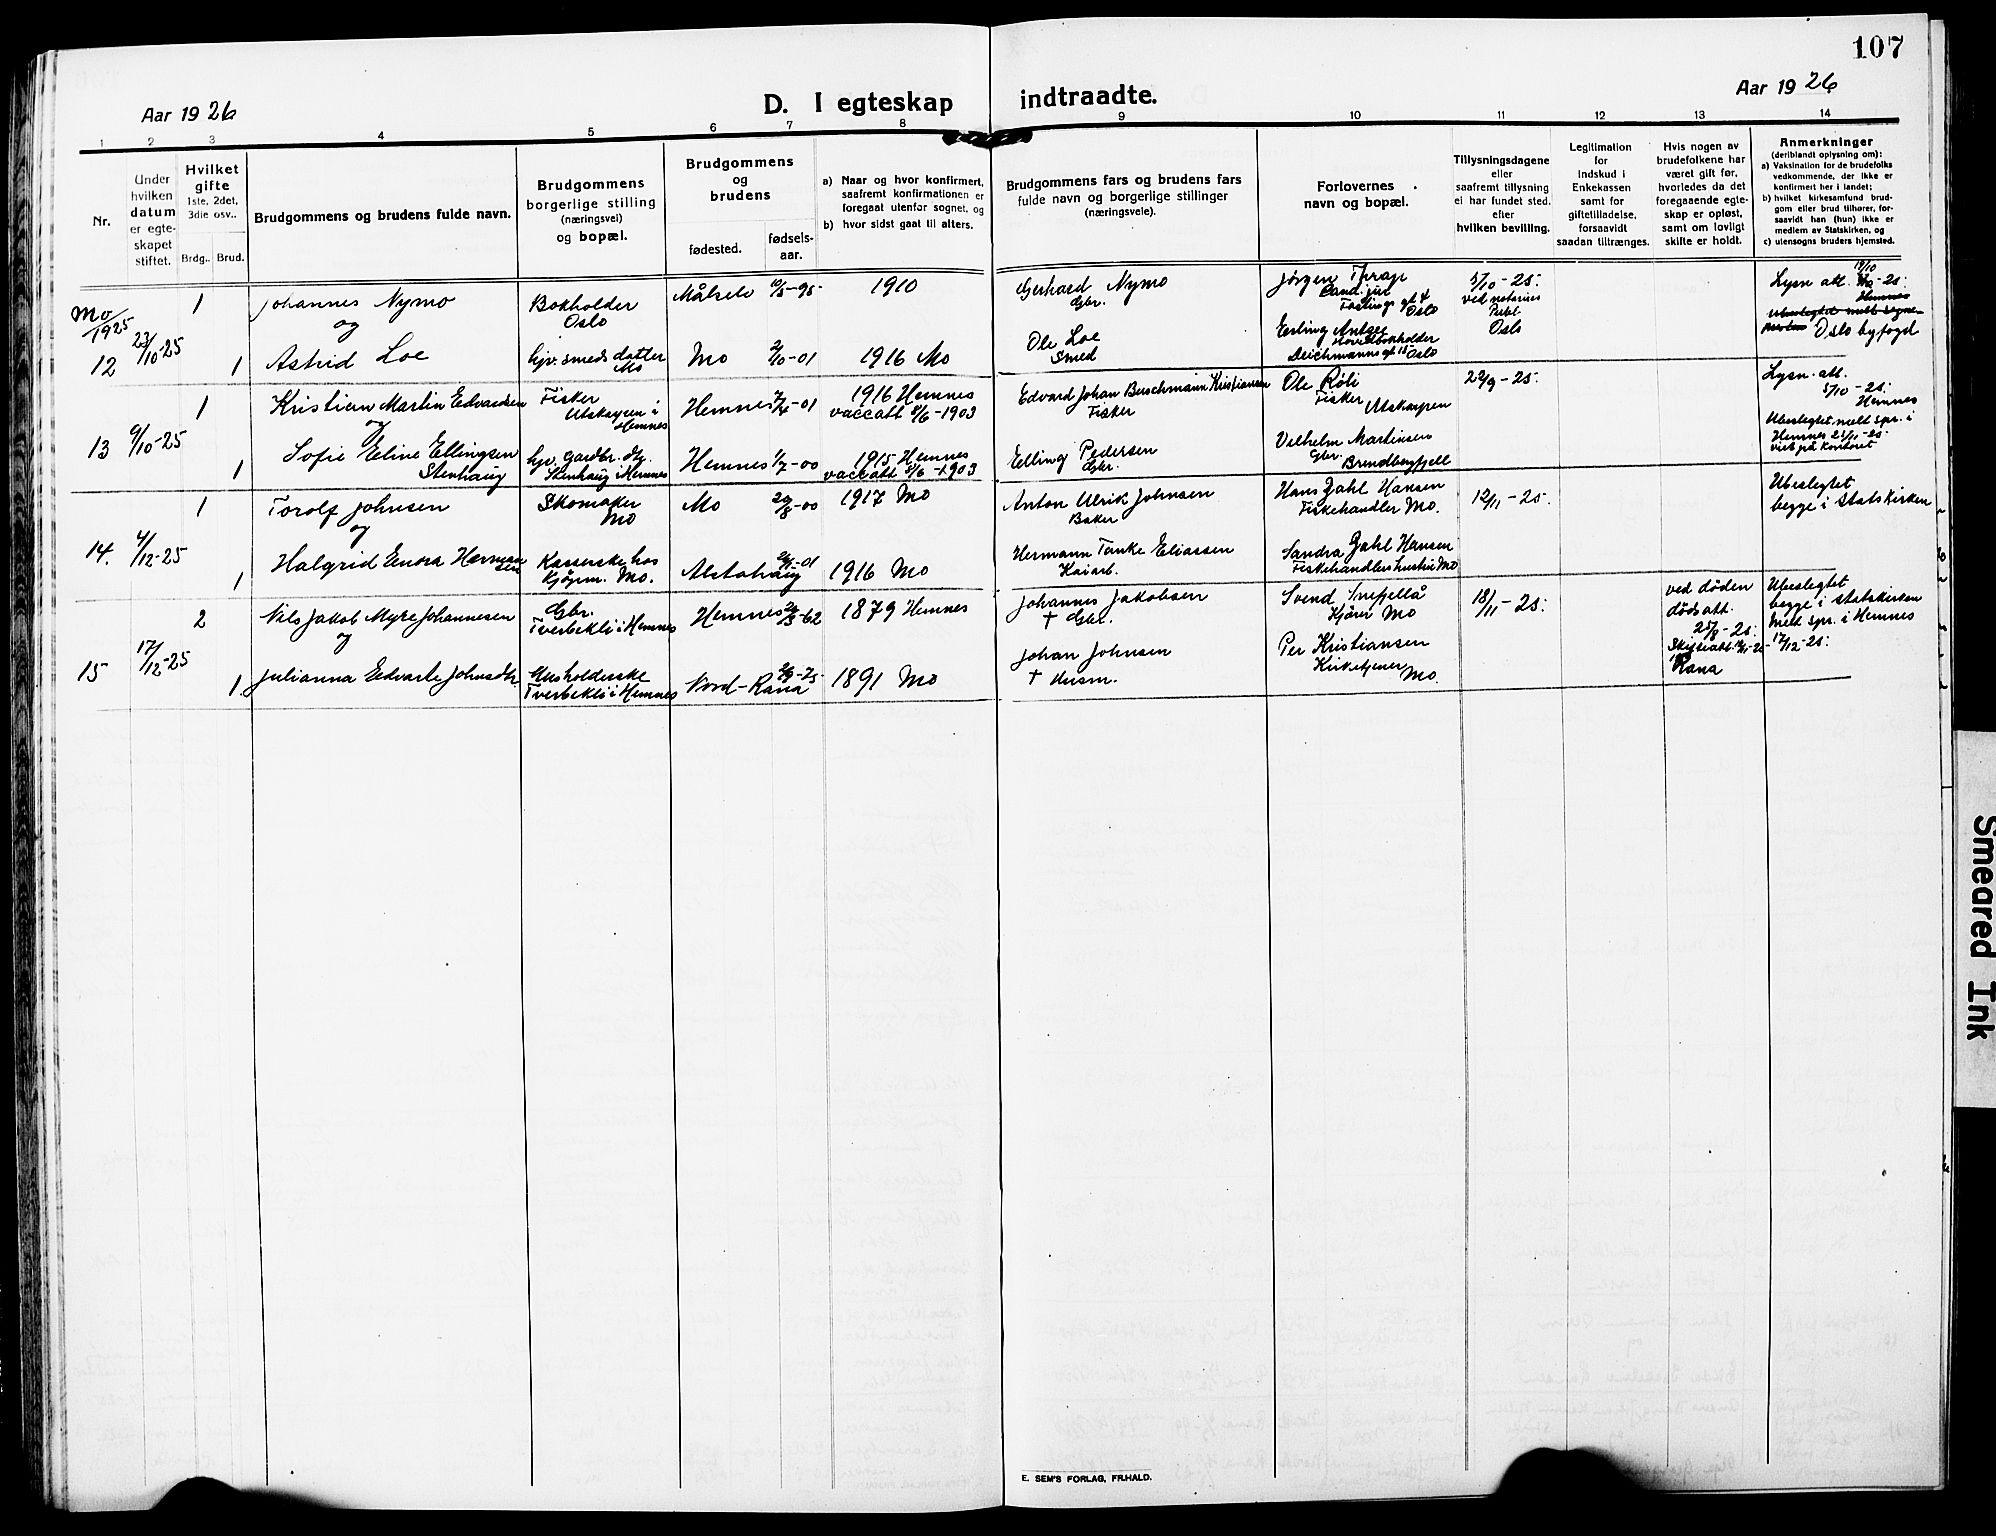 107
Aar 1926
D. I egteskap indtraadte.
Aar 1926
1 2 3 4 5 6 7 8 9 10 11 12 13 14
Nr.
Under
hvilken
datum
er egte-
skapet
stiftet.
Hvilket
gifte
1ste, 2det,
3die osv..
Brdg.. Brud.
Brudgommens og brudens fulde navn.
Brudgommens
borgerlige stilling
(næringsvei)
og bopæl.
Brudgommens
og
brudens
fødested.
fødsels-
aar.
a) Naar og hvor konfirmert,
saafremt konfirmationen er
foregaat utenfor sognet, og
b) hvor sidst gaat til alters.
Brudgommens fars og brudens fars
fulde navn og borgerlige stillinger
(næringsveie).
Forlovernes
navn og bopæl.
Tillysningsdagene
eller
saafremt tillysning
ei har fundet sted.
efter
hvilken bevilling.
Legitimation
for
Indskud i
Enkekassen
samt for
giftetilladelse,
forsaavidt
saadan tiltrænges.
Hvis nogen av
brudefolkene har
været gift før,
hvorledes da det
foregaaende egte-
skap er opløst,
samt om lovligt
skifte er holdt.
Anmerkninger
(deriblandt oplysning om):
a) Vaksination for de brudefolks
vedkommende, der ikke er
konfirmert her i landet;
b) hvilket kirkesamfund brud-
gom eller brud tilhører, for-
saavidt han (hun) ikke er
medlem av Statskirken, og
c) utensogns bruders hjemsted.
Mo
1925
12
23/10-25
1
Johannes Nymo
og
Bokholder
Oslo
Målselv
10/5-95
1910
Gerhard Nymo
Gbr.
Jørgen
Cand. jur
Oslo
5/10-25.
ved notarius
Publ
Oslo
Lysn att.
Hemnes
Oslo byfogd
1
Astrid Loe
hjv. smeds datter
Mo
Mo
2/10-01
1916 Mo
Ole Loe
Smed
Erling
Hovedbokholder
Deichmanns gt 15 Oslo
13
9/10-25
1
Kristian Martin Edvardsen
og
Fisker
Utskarpen i
Hemnes
Hemnes
1916 Hemnes
vaccatt 8/6-1903
Edvard Johan Buschmann Kristiansen
Fisker
Ole Røli
Fisker
Utskarpen
22/9-25.
Lysn. att.
5/10-25.
Hemnes
Ubeslegtet meld spr. i
Hemnes
1
Sofie Eline Ellingsen
Stenhaug
hjv. Gardbr. dtr.
Stenhaug i Hemnes
Hemnes
1/7-00
1915 Hemnes
vaccatt 8/6-1903
Elling Pedersen
Gbr.
Vilhelm Martinsen
Gbr.
Brendbergfjell
14.
4/12-25
1
Torolf Johnsen
og
Skomaker
Mo
Mo
1917 Mo
Anton Ulrik Johnsen
Baker
Hans Zahl Hansen
Fiskehandler Mo.
12/11-25.
Ubeslegtet
begge i Statskirken
1
Halgrid Enora Herman
sen
Kassererske hos
Kjøpm. Mo.
Alstahaug
1916 Mo
Hermann Tanke Eliassen
Kaiarb.
Sandra Zahl Hansen
Fiskehandlers hustru Mo
15
17/12-25
2
Nils Jakob Myre Johannesen
og
Gbr.
Tverbekli i Hemnes
Hemnes
1879 Hemnes
Johannes Jakobsen
† Gbr.
Svend Snefjellå
Kjører Mo
18/11-25.
ved døden
dødsatt.
25/8-25.
Rana
Ubeslegtet
begge i Statskirken
Meld spr. i Hemnes
17/12-25.
1.
Julianna Edvarte Johnsdtr.
Husholderske
Tverbekli i Hemnes
Nord-Rana
1891 Mo
Johan Johnsen
† Husm.
Per Kristiansen
Kirketjener
Mo.
E. SEM'S FORLAG, FR.HALD.
Smeared Ink